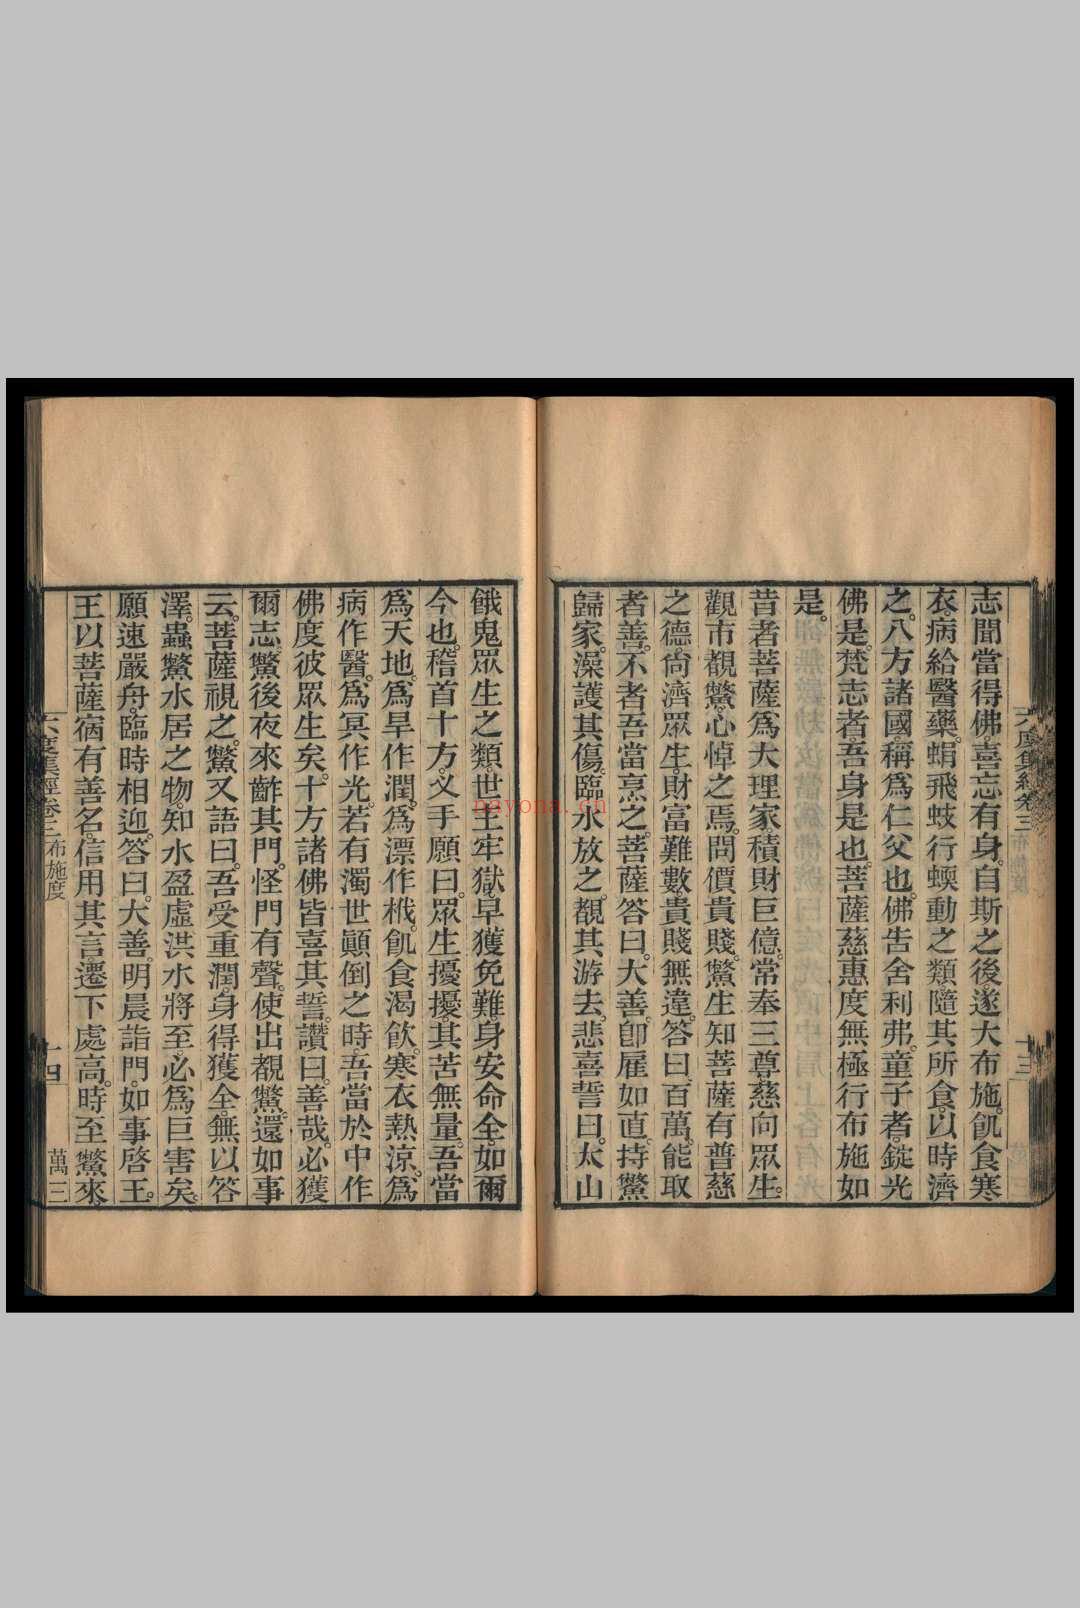 志聞當得佛。喜忘有身。自斯之後。遂大布施。飢食寒
衣。病給醫藥。蜎飛蚑行蝡動之類。隨其所食。以時濟
之。八方諸國。稱爲仁父也。佛告舍利弗。童子者。錠光
佛是。梵志者。吾身是也。菩薩慈惠度無極行布施如
是。
昔者菩薩爲大理家。積財巨億。常奉三尊。慈向眾生。
觀市覩鱉。心悼之焉。問價貴賤。鱉主知菩薩有普慈
之德。尙濟眾生。財富難數。貴賤無違。答曰。百萬。能取
者善。不者吾當烹之。菩薩答曰。大善。卽雇如直。持鱉
歸家。澡護其傷。臨水放之。覩其游去。悲喜誓曰。太山
六度集經卷三
布施度
十三
餓鬼眾生之類。世主牢獄。早獲免難。身安命全。如爾
今也。稽首十方。叉手願曰。眾生擾擾。其苦無量。吾當
爲天地。爲旱作潤。爲漂作栰。飢食渴飲。寒衣熱涼。爲
病作醫。爲冥作光。若有濁世顚倒之時。吾當於中作
佛度彼眾生矣。十方諸佛皆喜其誓。讚曰。善哉。必獲
爾志。鱉後夜來齚其門。怪門有聲。使出覩鱉。還如事
云。菩薩視之。鱉又語曰。吾受重潤。身得獲全。無以答
澤。蟲鱉水居之物。知水盈虛。洪水將至。必爲巨害矣。
願速嚴舟。臨時相迎。答曰。大善。明晨詣門。如事啓王。
王以菩薩宿有善名。信用其言。遷下處高。時至鱉來。
六度集經卷三
布施度
十四
萬三
nayona.cn